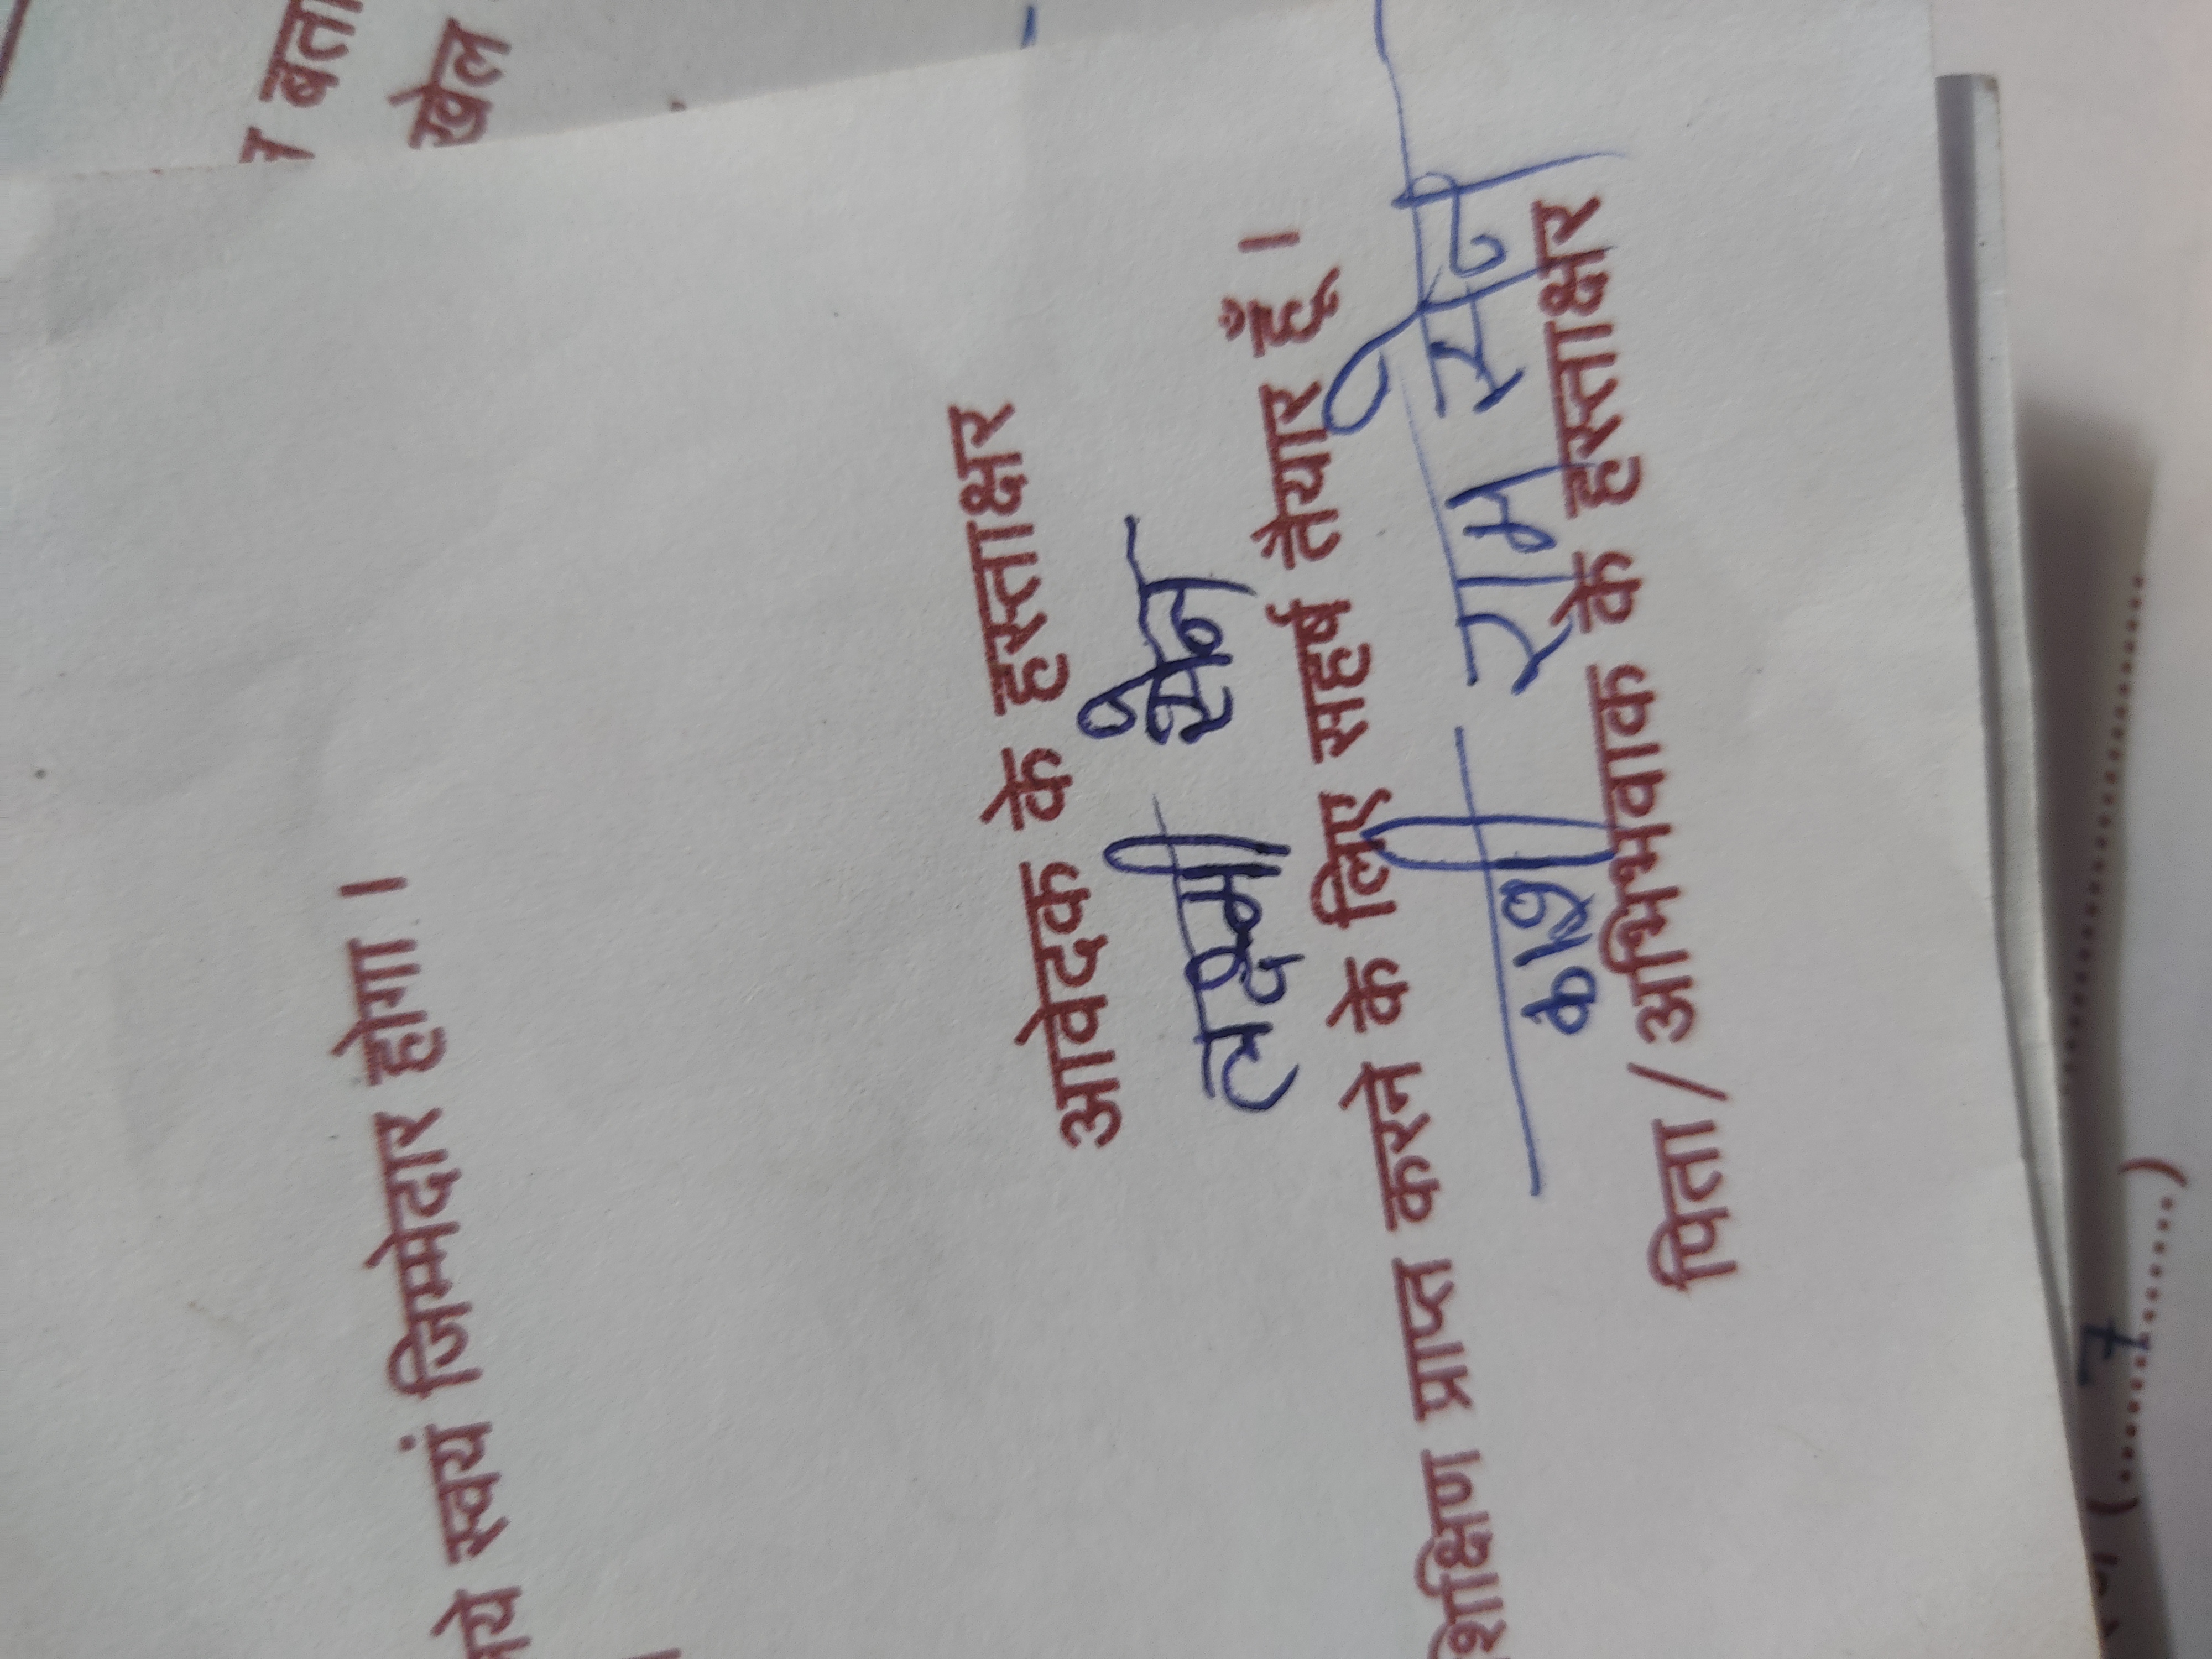 बता
खेल
ये स्वयं जिम्मेदार होगा ।
आवेदक के हस्ताक्षर
लक्ष्मी सेन
शिक्षण प्राप्त करने के लिए सहर्ष तैयार हूँ ।
काशी राम सेन
पिता / अभिभवाक के हस्ताक्षर
(.......7.......)